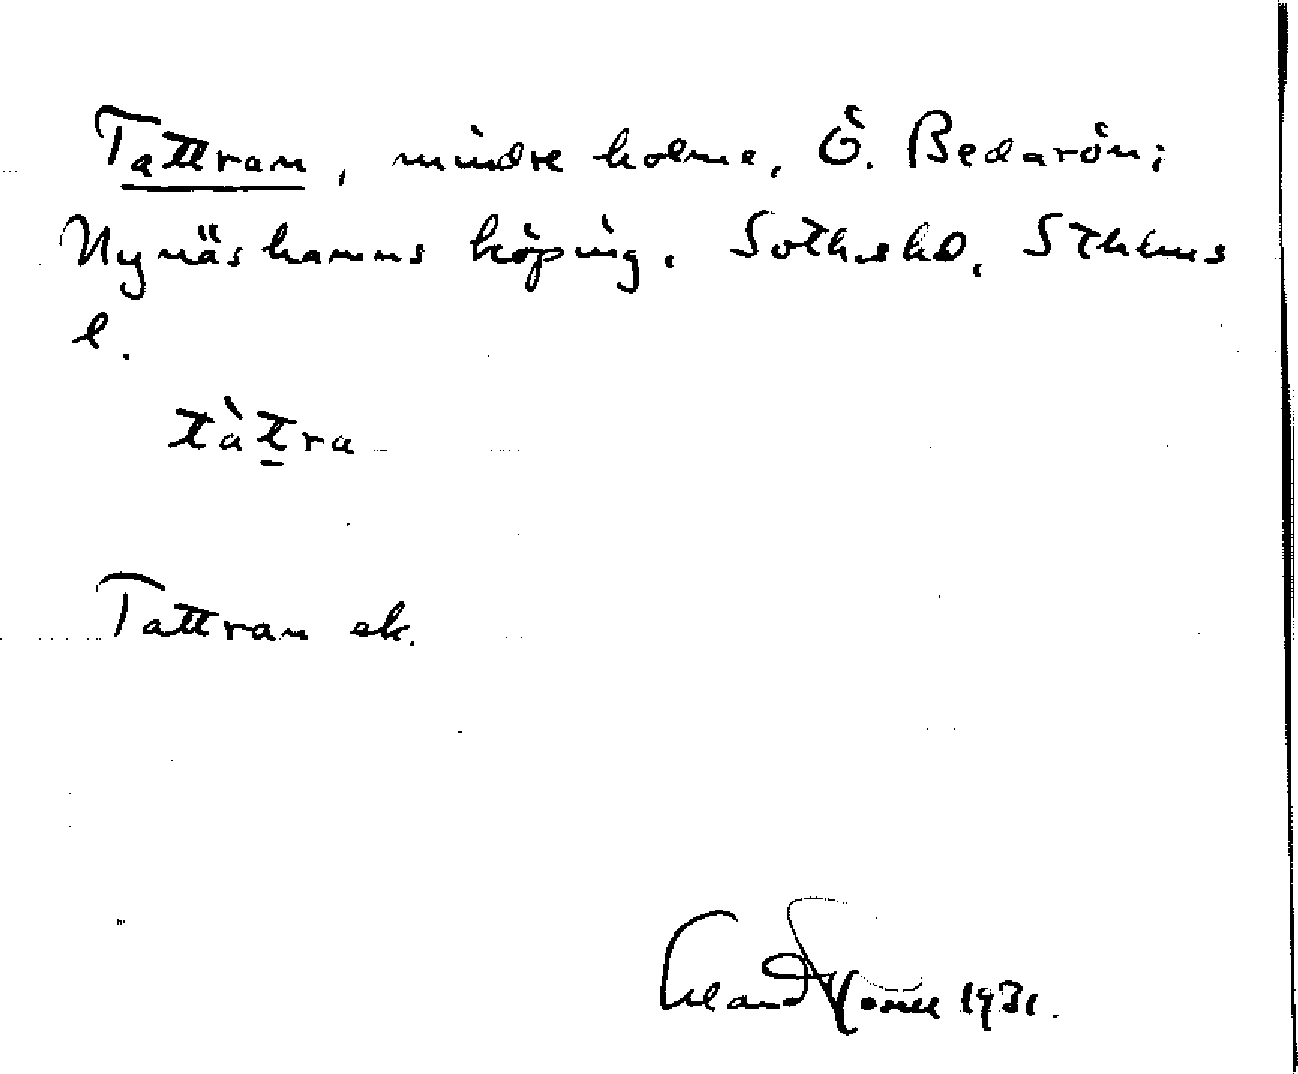 Tattran, mindre holme, Ö. Bedarön;
Nynäshamns köping. Sotholms hd, Sthlms
l.
tàt̠ra
Tattran ek.
Erland Rosell 1931.